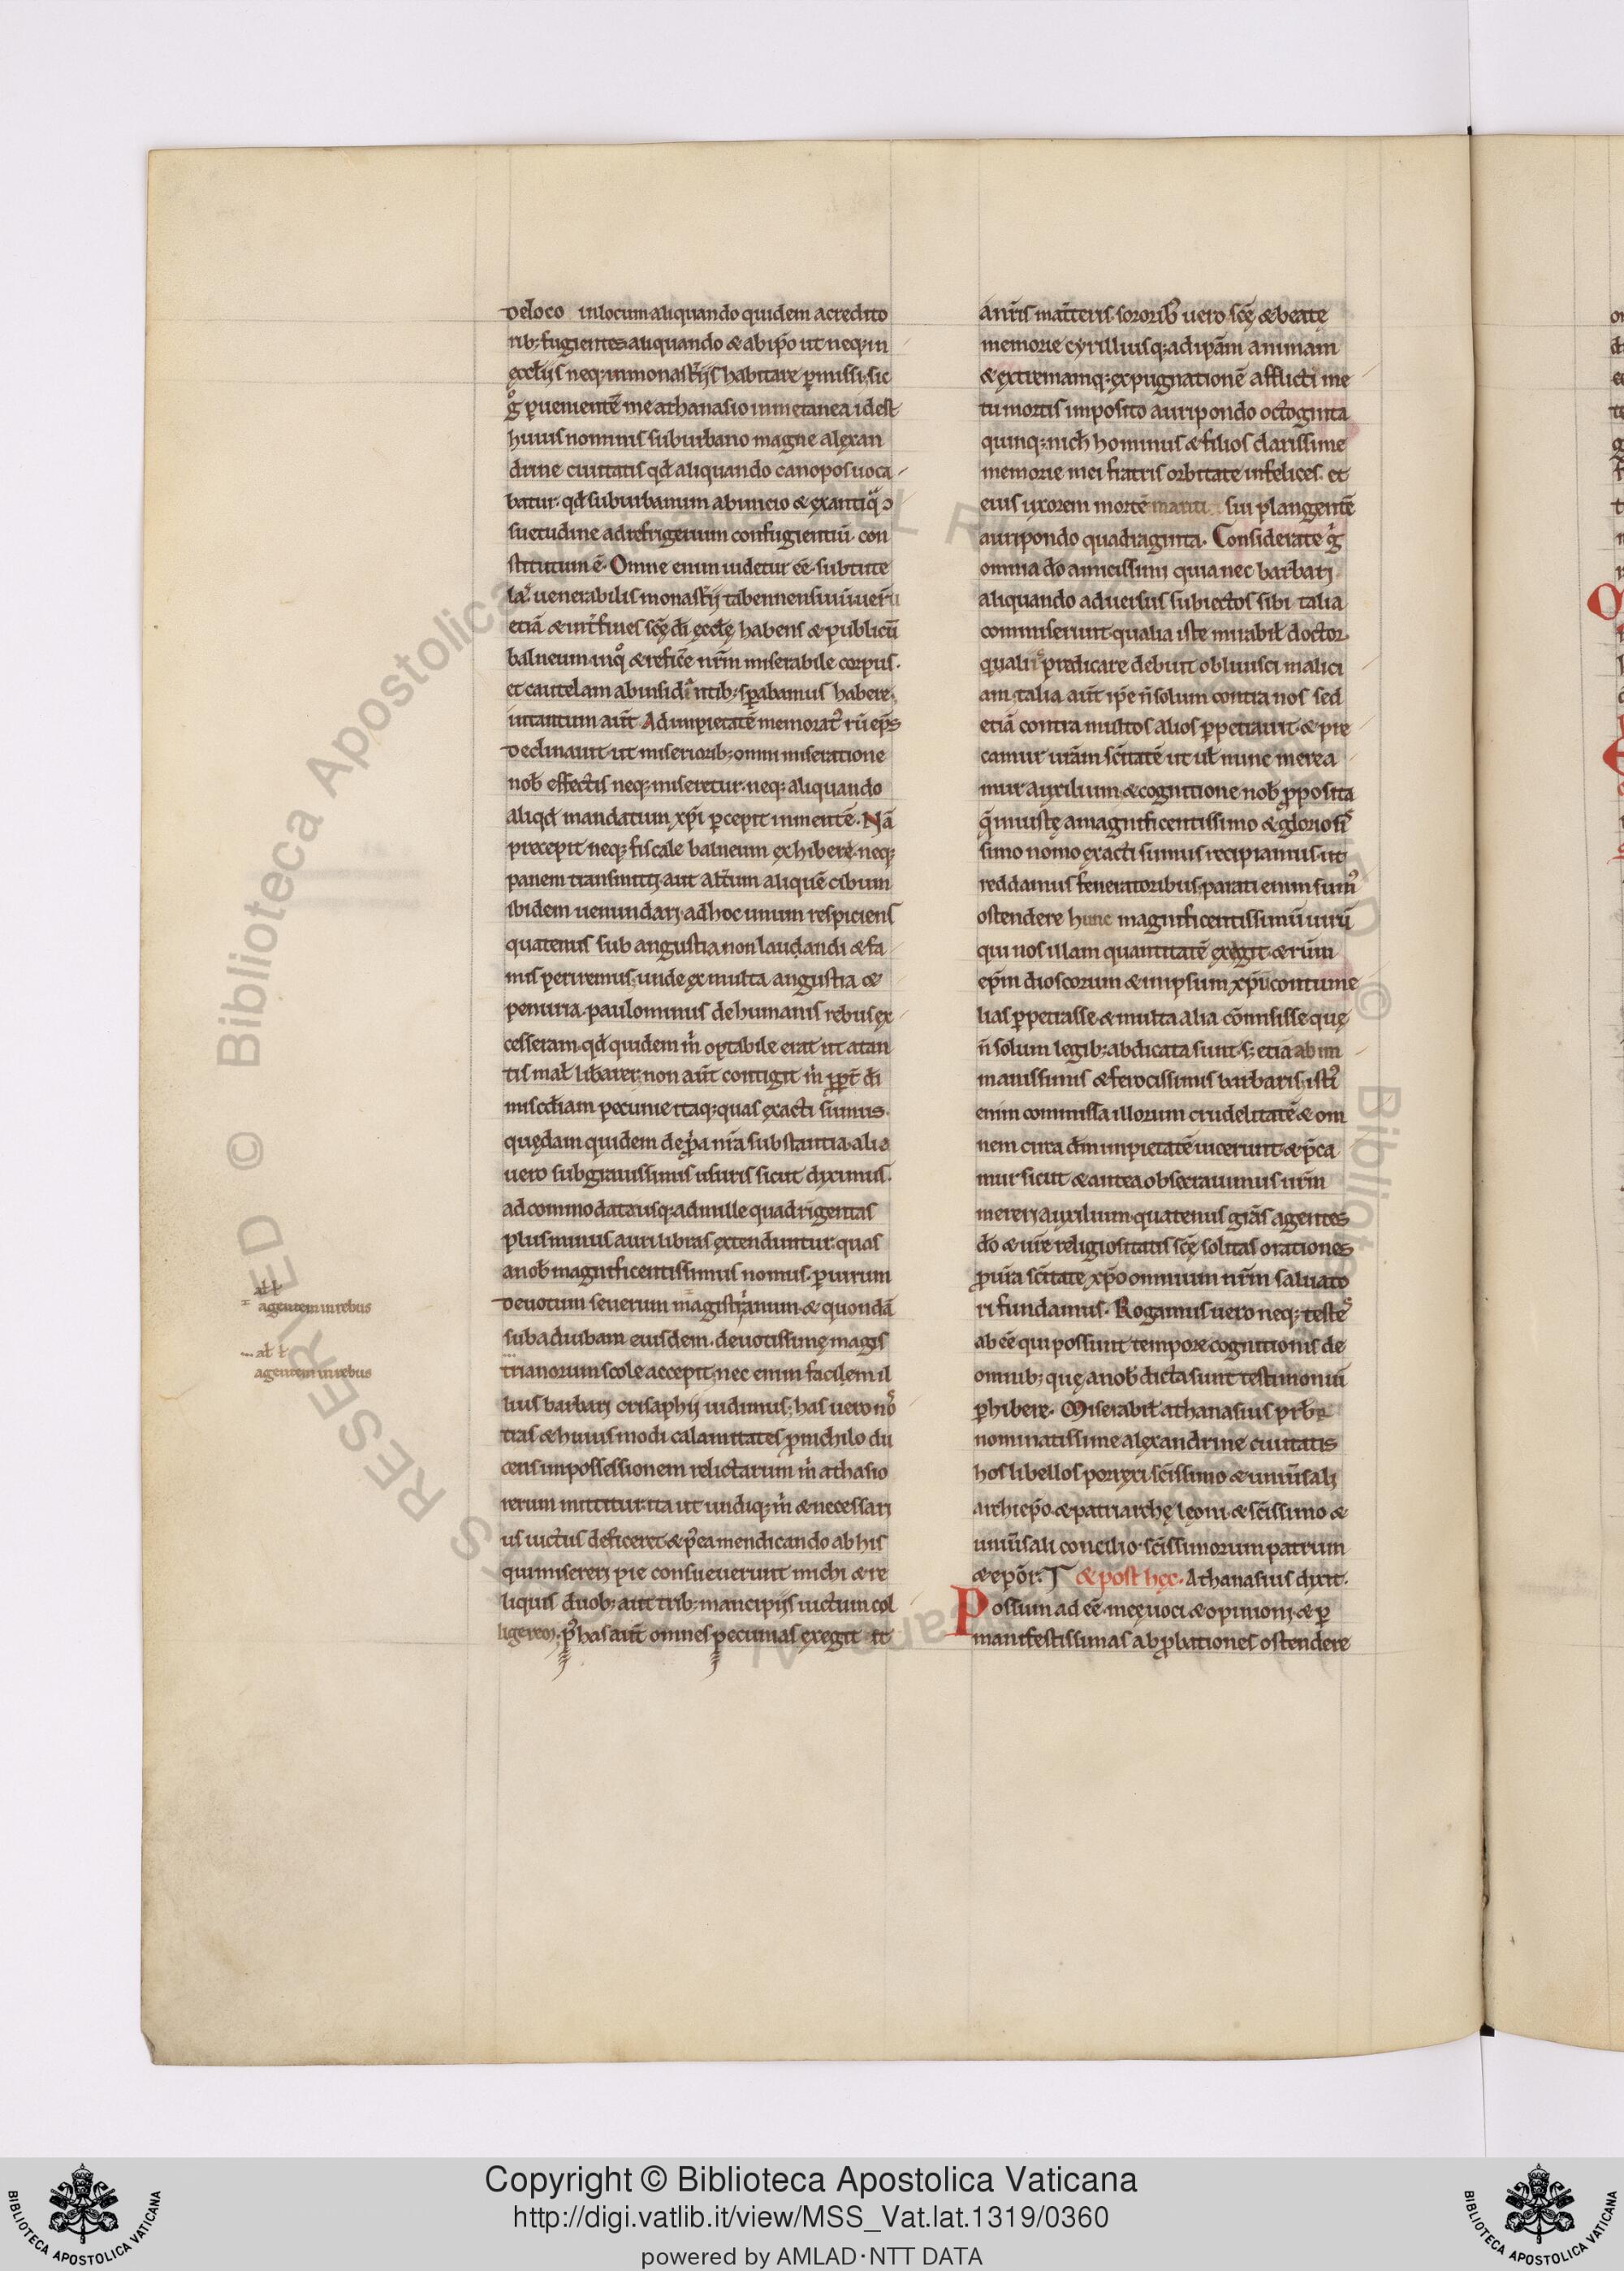 de loco in locum aliquando quidem a credito
rib; fugientes aliquando & ab ipo ut neq; in
ęccłijs neq; in monast̄ijs habitare p̄missi. sic
g̊ pueniente᷄ me athanasio in metanea id est
huius nominis suburbano magne alexan
drine ciuitatis qd̄ aliquando canopos uoca
batur. qd̄ suburbanum ab uncio & ex antiq̊ ↄ
suetudine ad refrigerium confugientiū. con
stitutum ē. Omne enim uidetur eē. sub tute
la venerabilis monast̄ij tabennensium uer
etiā & int̄ fines scę̄ di ęccłę habens & publicū
balneum. in q̊ & refice nrm̄ miserabile corpus.
et cautelam ab insidiantib; sp̄abamus habere.
in tantum aut̄ Ad impietatē memorat᾿ r̄u ep̄s
declinauit ut miserioribus; omni miseratione
nob̄ effectis neq; miseretur. neq; aliquando
aliqd̄ mandatum xp̄i pcepit in mentē. Nā
precepit neq; fiscale balneum exhibere. neq;
panem transmitti. aut alt̄um aliquē cibum
ibidem uenundari. ad hoc unum respiciens
quatenus sub angustia non laudandi & fa
mis periremus. unde ex multa angustia &
penuria. paulominus de humanis rebus ex
cesseram. qd̄ quidem m̄ optabile erat ut a tan
tis mał lib̄arer. non aut̄ contigit m̄ ppt̄ di
misc̄diam. pecunie itaq; quas exacti sumus.
quędam quidem de ppa nr̄a substantia. alia
uero sub grauissimis usuris sicut diximus.
ad commodata usq; ad mille quadrigentas
plus minus auri libras extenduntur. quas
a nob̄ magnificentissimus nomus. p uirum
deuotum seuerum magistrianum. & quondā
subadiubam eiusdem. deuotissimę magis
trianorum scole accepit. nec enim facilem il
lius barbari crisaphij uidimus. has uero nr̄
tras & huiusmodi calamitates p nichilo du
cens in possessionem relictarum m̄ athasio
rerum mittitur. ita ut undiq; m̄ & necessari
us uictus deficeret. & pp̄ ea mendicando ab his
qui misereri pie consueuerunt michi & re
liquis duob; aut trib; mancipijs uictum col
ligerem. p̄ has aut̄ omnes pecunias exegit it
ał ł
= agentem in rebus
... ał ł
agentem in rebus
anr̄is mat̄teris. sororib᾿ uero scę̄ & beate
memorie cyrilli usq; ad ipām animam
& extremamq; expugnationē afflicti me
tu mortis imposito auri pondo octoginta
quinq; nich̄ hominus & filios clarissime
memorie mei fratris orbitate infelices. et
eius uxorem mortē mariti sui plangentē
auri pondo quadraginta. Considerate g̊
omnia dō amicissimi quia nec barbari
aliquando aduersus subiectos sibi talia
commiserunt. qualia iste mirabił doctor
qualit᾿ predicare debuit obliuisci malici
am. talia aut̄ ipe n̄ solum contra nos sed
etiā contra multos alios ppetrauit. & pre
camur ur̄am sc̄itatē ut uł nunc merea
mur auxilium. & cognitione nob̄ p̄posita
q̄ iniustę a magnificentissimo & gloriosis
simo nomo exacti sumus recipiamus. ut
reddamus feneratoribus. parati enim sum᾿
ostendere hunc magnificentissimū uirū
qui nos illam quantitatē exegit. & r̄um
ep̄m dioscorum & in ipsum xp̄m contume
lias ppetrasse. & multa alia cōmisisse quę
n̄ solum legib; abdicata sunt. s; etiā ab im
manissimis & ferocissimis barbaris. isti᾿
enim commissa illorum crudelitatē & om
nem circa dm̄ impietatē uicerunt. & p̄ca
mur sicut & antea obsecrauimus urm̄
mereri auxilium. quatenus grās agentes
dō & ur̄e religiositatis scę̄ solitas orationes
p ur̄a sc̄itate xp̄o omnium nrm̄ saluato
ri fundamus. Rogamus uero neq; testes
ab eē qui possunt tempore cognitionis de
omnib; quę a nob̄ dicta sunt testimoniū
phibere. Miserabił athanasius prb̄r
nominatissime alexandrine ciuitatis
hos libellos porrexi. sc̄issimo & uniūsali
archiep̄o & patriarchę leoni. & sc̄issimo &
uniūsali concilio. sc̄issimorum patrum
& ep̄or. T & post hęc. Athanasius dixit.
Possum ad eē. meę uoci & opinioni. & p
manifestissimas ab p̄bationes ostendere
Copyright © Biblioteca Apostolica Vaticana
http://digi.vatlib.it/view/MSS_Vat.lat.1319/0360
powered by AMLAD·NTT DATA
BIBLIOTECA APOSTOLICA VATICANA
BIBLIOTECA APOSTOLICA VATICANA